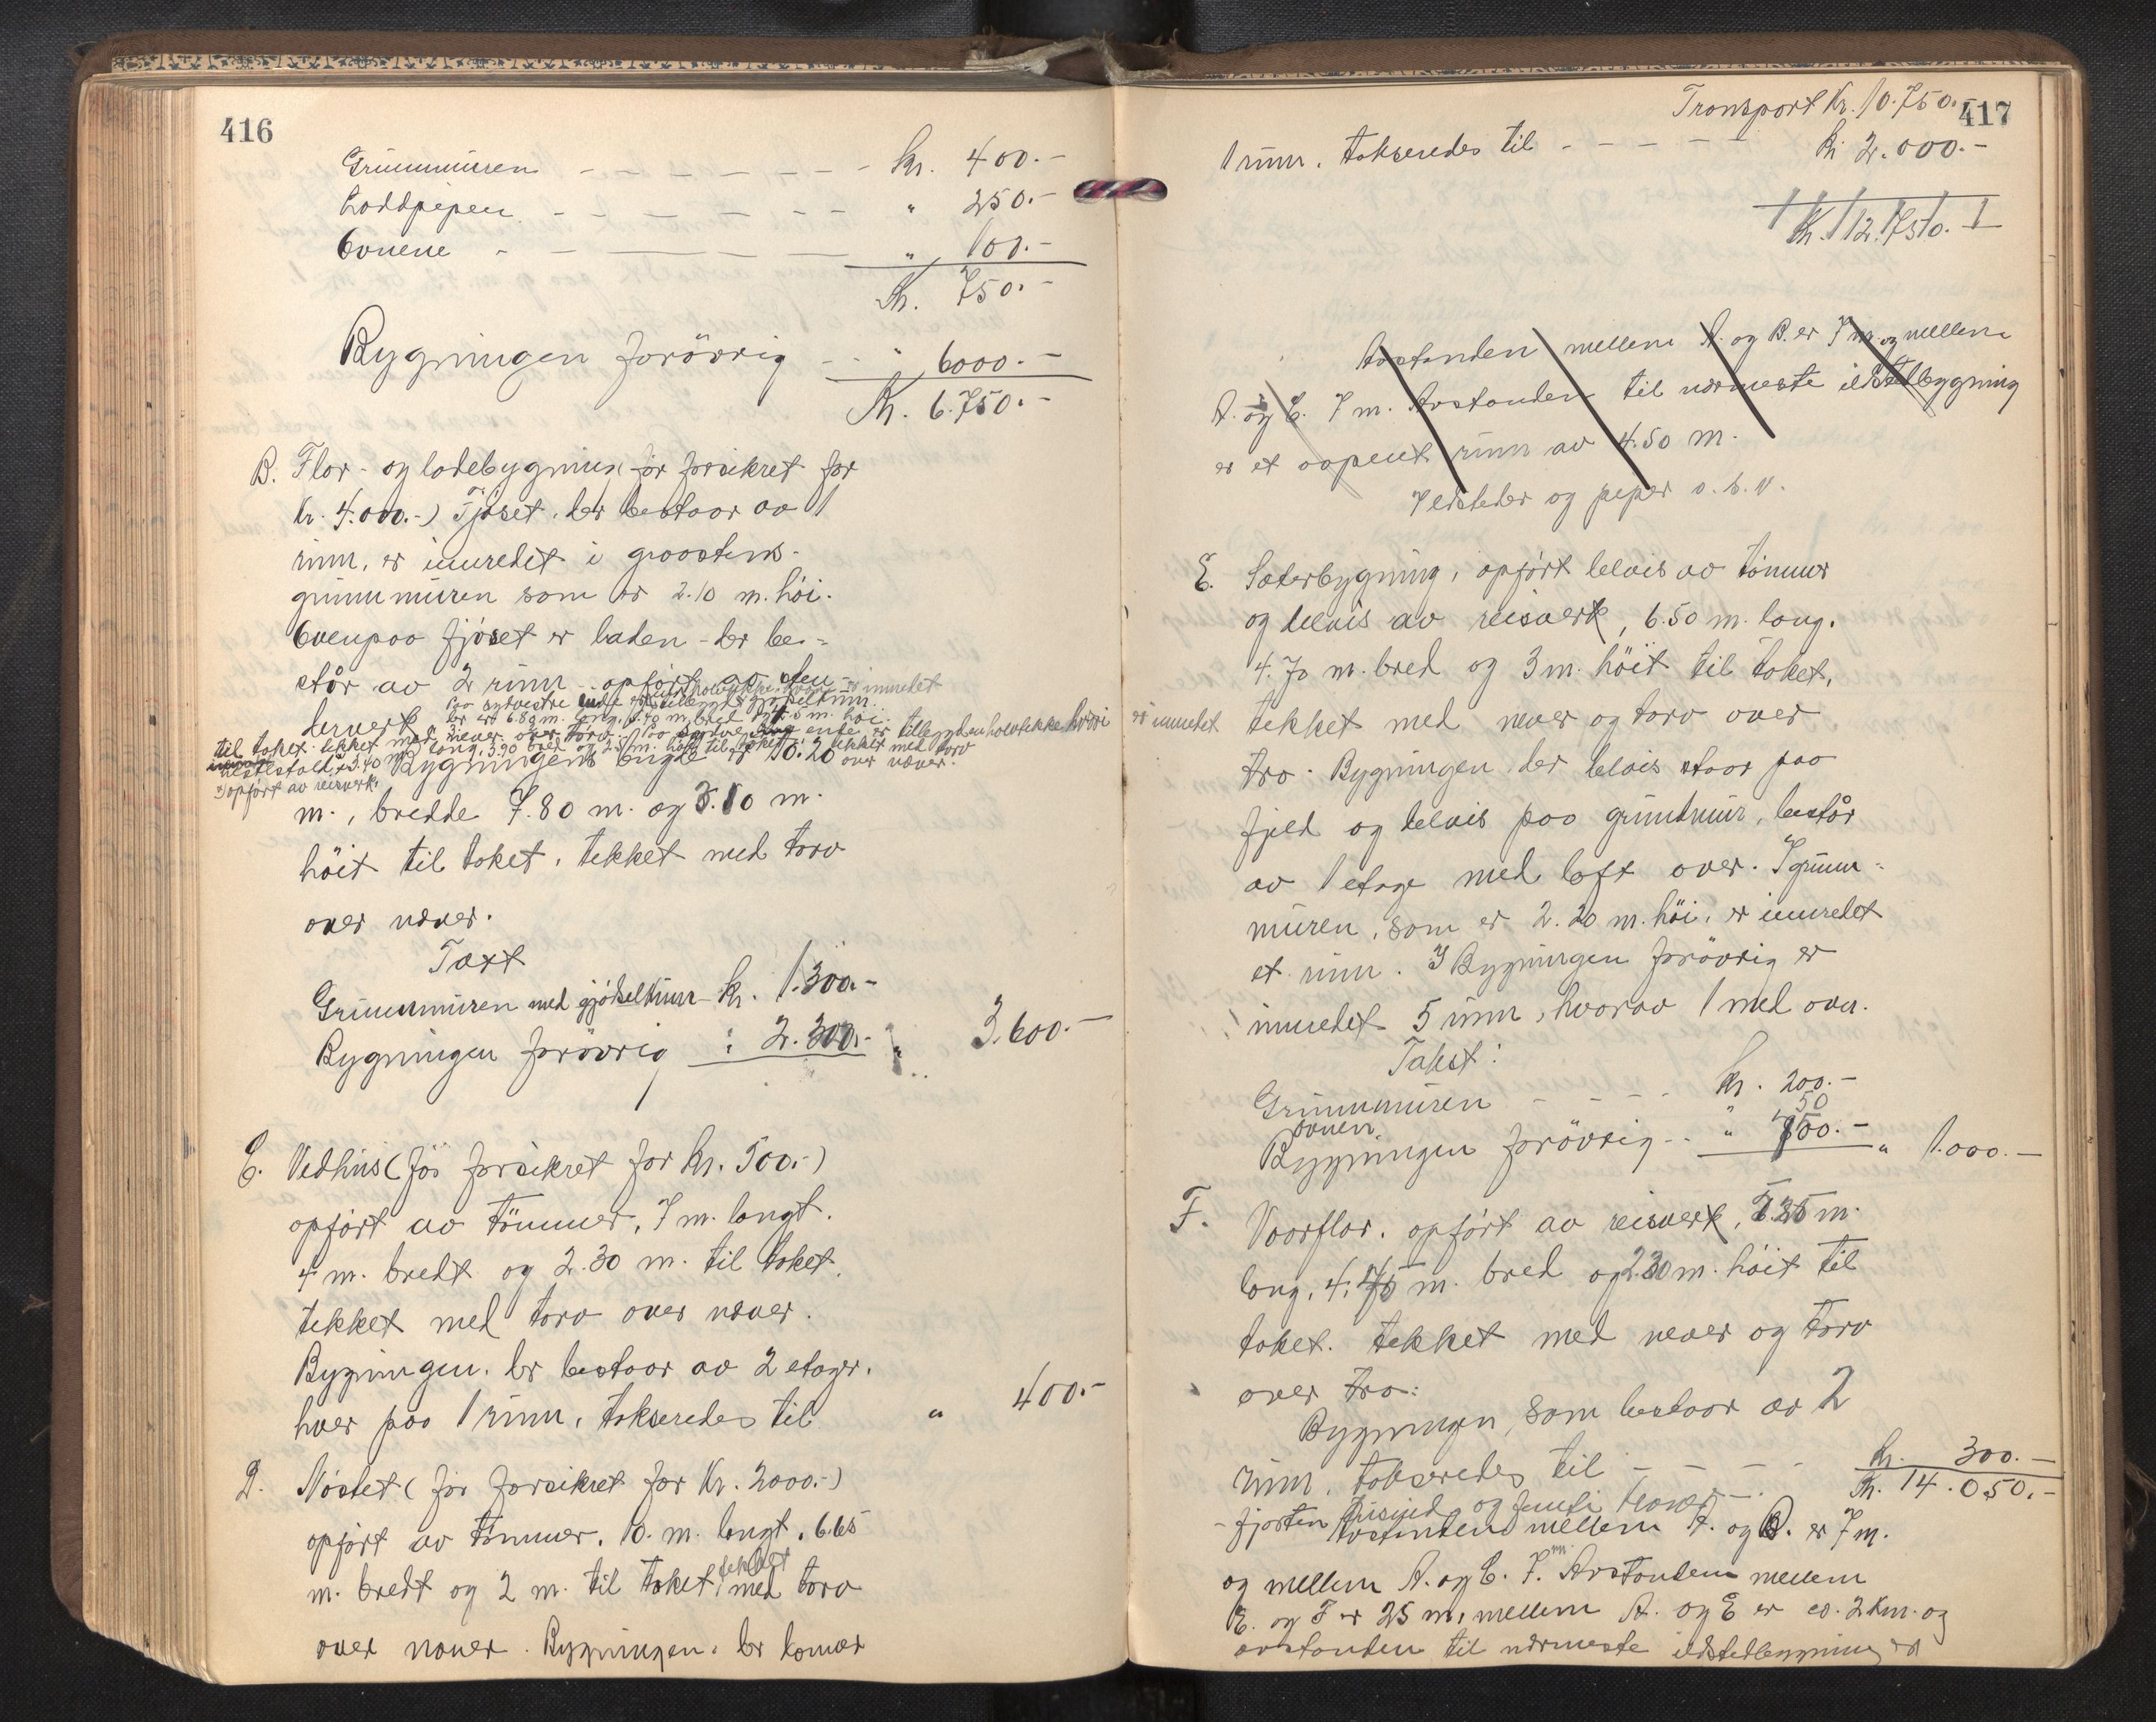 416
Grunnmuren - - - - - - - kr. 400.-
Loddpipen - - - - - - - " 250.-
Ovnene - - - - - " 100.-
Kr. 750.-
Bygningen forövrig - - " 6000.-
Kr. 6.750.-
B. Flor- og ladebygning (før forsikret for
kr. 4.000.-) Fjöset, der bestaar av 1
rum, er innredet i graastens-
grunnmuren som er 2.10 m. höi.
Ovenpaa fjöset er laden - der be-
står av 2 rum - opført av sten-
derverk
til taket tekket med næver over torv.
hestestald
Bygningens længde er 10.20
opført av reisverk.
over næver.
m., bredde 7.80 m. og 3.10 m.
höit til taket, tekket med torv
over næver.
Taxt
Grunnmuren med gjødselkum - kr. 1.300.-
Bygningen forövrig : 2.300.- " 3.600.-
C. Vedhus (før forsikret for kr. 500.-)
opført av tömmer, 7 m. langt,
4 m. bredt og 2.30 m. til taket,
tekket med torv over næver.
Bygningen, der bestaar av 2 etager,
hver paa 1 rum, takseredes til " 400.-
D. Nøstet (før forsikret for Kr. 2000.-)
opført av tömmer, 10. m. langt, 6.65
m. bredt og 2 m. til taket, tekket med torv
over næver. Bygningen, der danner
417
Transport Kr. 10.750.-
1 rum, takseredes til - - - - - Kr 2.000.-
Kr. 12.750.-
Avstanden mellem A. og B. er 7 m. og mellem
A. og C. 7 m. Avstanden til nærmeste ildstedbygning
er et aapent rum av 4.50 m.
Ildsteder og piper o.s.v.
E. Sæterbygning, opført delvis av tömmer
og delvis av reisverk, 6.50 m. lang,
4.70 m. bred og 3 m. höit til taket,
er innredet
tekket med næver og torv over
tro. Bygningen, der delvis staar paa
fjeld og delvis paa grundmur, består
av 1 etage med loft over. I grunn-
muren, som er 2.20 m. höi, er innredet
et rum. I Bygningen forövrig er
innredet 5 rum, hvorav 1 med ovn.
Takst:
Grunnmuren - - - - kr. 200.-
ovnen " 50
Bygningen forövrig - - " 750.- " 1.000.-
F. Vaarflor, opført av reisverk, m.
lang, m. bred og 2.30 m. höit til
taket, tekket med never og torv
over tro:
Bygningen, som bestaar av 2
rum, takseredes til - - - - kr. 300.-
Kr. 14.050.-
- fjorten tusind og femti kroner -
Avstanden mellem A. og B. er 7 m.
og mellem A. og C. 7. m. Avstanden mellem
E. og F er 25 m, mellem A. og E er ca. 2 km. og
avstanden til nærmeste ildstedbygning er